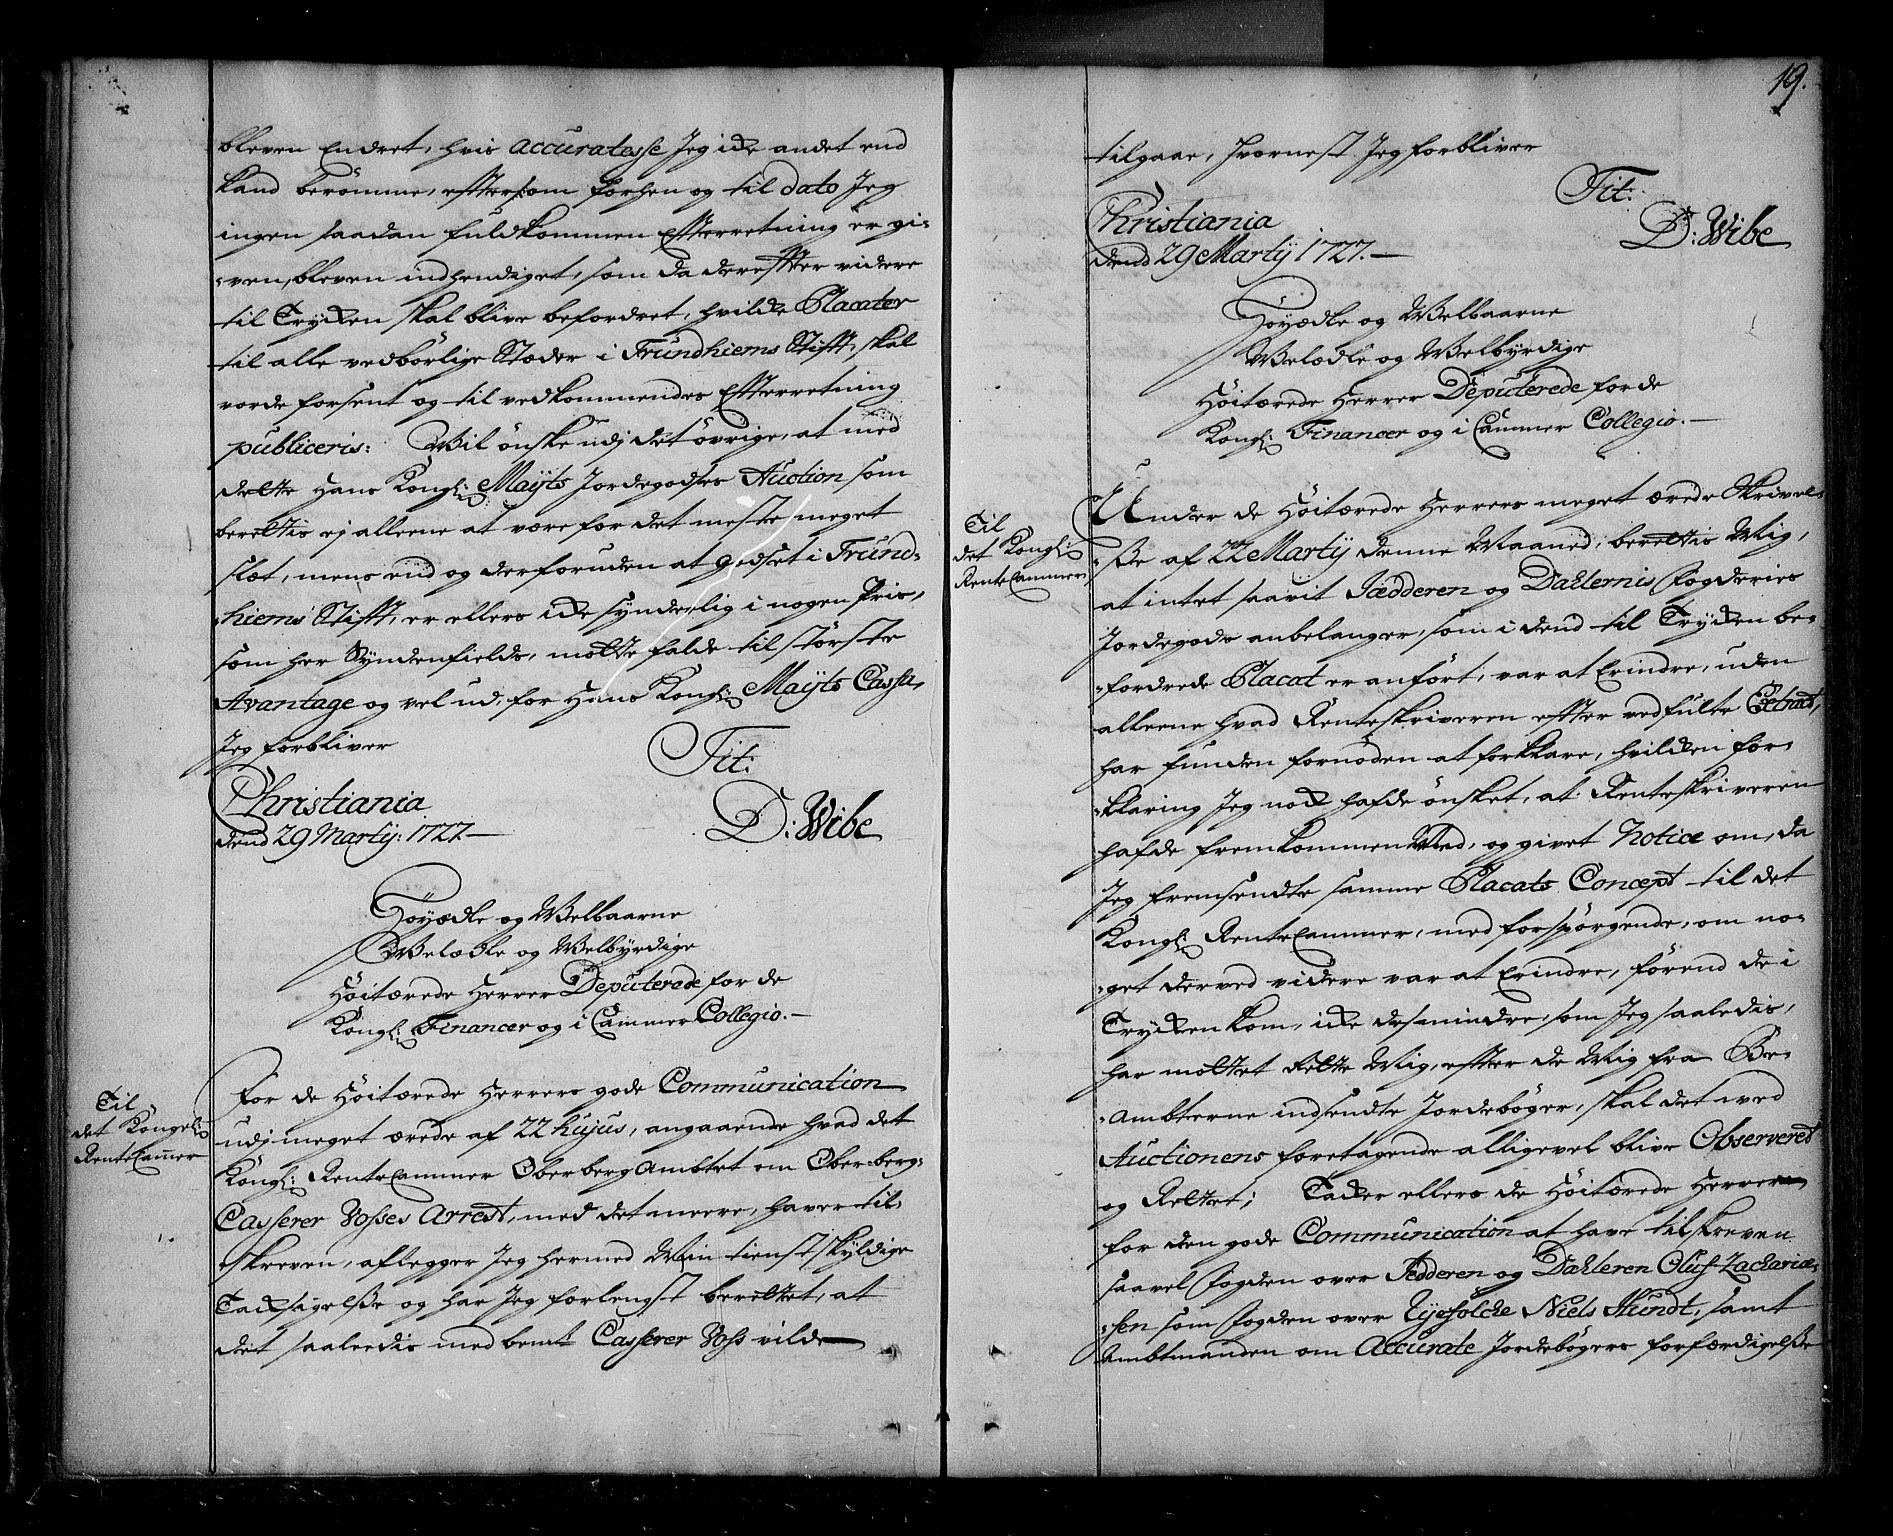 bleven Endret, hvis accuratesse Jeg icke andet end
kand berømme, efftersom forhen og til dato Jeg
ingen saadan fuldkommen Efterretning er gi-
-ven, bleven indhendiget, som da derefter videre
til Trycken skal blive befordret, hvilcke Placater
til alle vedbørlige Stæder i Trundhiems Stifft, skal
vorde forsent og til vedkommendes Efterretning
publiceris: Vil ønske udj det øvrige, at med
dette Hans Kongl: Maÿts Jordegodses Auction som
berettis ej alleene at være for det meste meget
slet, mens end og derforuden at godset i Trund-
-hiems Stifft, er ellers icke synderlig i nogen Pris,
som her Syndenfields, motte falde til største
Avantage og vel ud, for Hans Kongl: Maÿts Cassa,
Jeg forbliver
Tit:
Christiania
dend 29 Martij: 1727.
D: Wibe
Høyædle og Velbaarne
Velædle og Velbyrdige
Høitærede Herrer Deputerede for de
Kongl: Financer og i Cammer Collegio.
Til
det Kongel:
RenteCammer
For de Høitærede Herrers gode Communication
udj meget ærede af 22 hujus, angaaende hvad det
Kongl: RenteCammer OberbergAmbtet om Oberberg-
Casserer Vosses Arrest, med det meere, haver til-
skreven, aflegger Jeg hermed Min tienstskyldige
Tacksigelsse og har Jeg forlengst berettet, at
det saaledis med bemt Casserer Voss vilde
19.
tilgaae, hvornest Jeg forbliver
Tit:
Christiania
dend 29 Martij 1727.
D: Wibe
Høyædle og Velbaarne
Velædle og Velbyrdige
Høitærede Herrer Deputerede for de
Kongl: Financer og i Cammer Collegio.
Til
det Kongl:
RenteCammer
Under de Høitærede Herrers meget ærede Skrivel-
-sse af 22 Martij denne Maaned, berettis Mig,
at intet saavit Jædderen og Dahlernis Fogderies
Jordegods anbelanger, som i dend til Trycken be-
-fordrede Placat er anført, var at Erindre, uden
alleene hvad Renteskriveren effter vedfulte Extract,
har funden fornøden at forklare, hvilcken for-
-klaring Jeg nock hafde ønsket, at Renteskriveren
hafde fremkommen Med, og givet Notice om, da
Jeg fremsendte samme Placats Concept til det
Kongl: RenteCammer, med forspørgende, om no-
-get derved videre var at Erindre, førend de i
Trycken kom, icke desmindre, som Jeg saaledis,
har mottet Rette Mig, effter de Mig fra Be-
-Ambterne indsendte Jordebøger, skal det ved
Auctionens foretagende alligevel blive Observeret
og Rettet; Tacker ellers de Høitærede Herrer
for den gode Communication at have tilskreven
saavel Fogden over Jædderen og Dahleren Oluf Zacharia-
-sen som Fogden over Ryefölcke Niels Hundt, samt
Ambtmanden om Accurate Jordebøgers forfærdigelsse